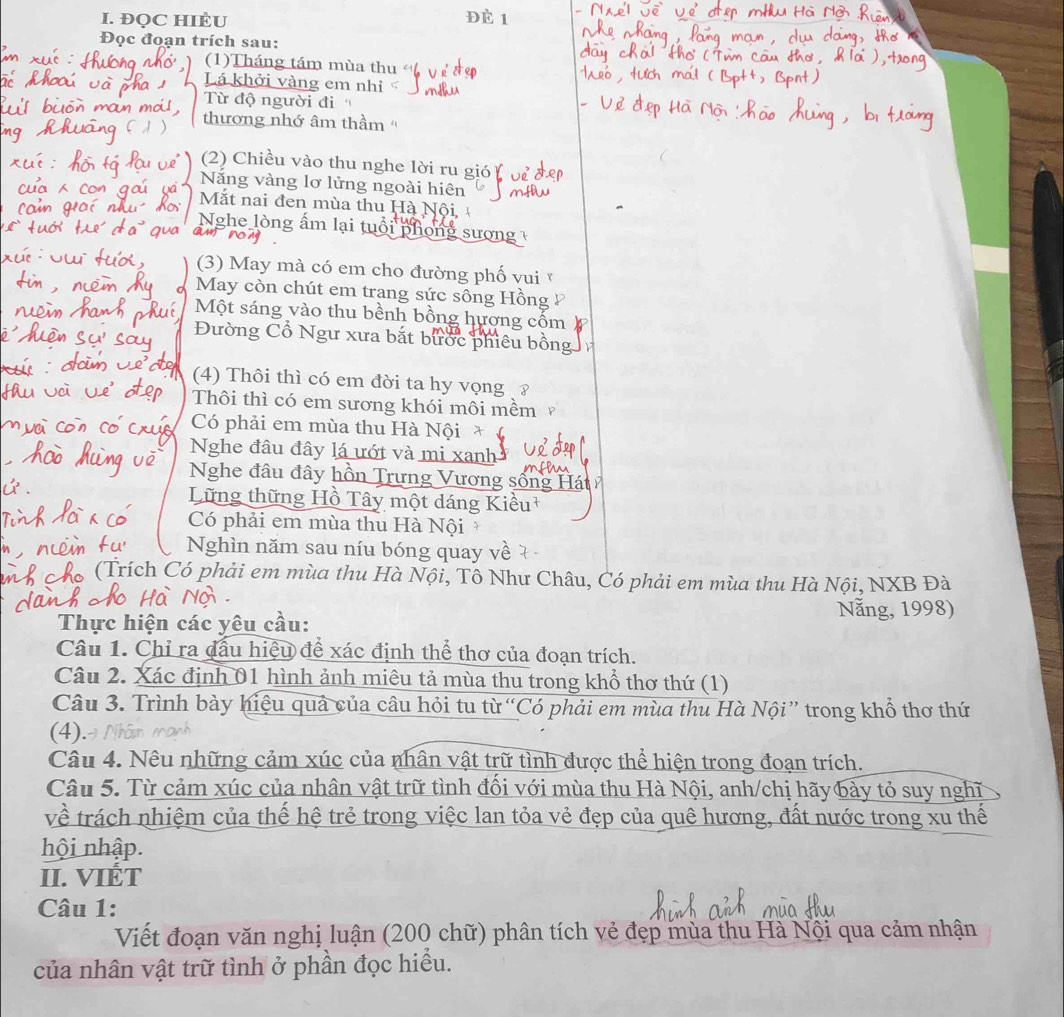 I. ĐỌC HIỂU
ĐỀ 1
Đọc đoạn trích sau:
(1)Tháng tám mùa thu
Lá khởi vàng em nhỉ
Từ độ người đi
thương nhớ âm thầm
(2) Chiều vào thu nghe lời ru gió
Nắng vàng lơ lửng ngoài hiên
Mắt nai đen mùa thu Hà Nội
Nghe lòng ấm lại tuổi phong sương
(3) May mà có em cho đường phố vui
May còn chút em trang sức sông Hồng
Một sáng vào thu bềnh bồng hương cốm
Đường Cổ Ngư xưa bắt bước phiêu bồng
(4) Thôi thì có em đời ta hy vọng
Thôi thì có em sương khói môi mềm
Có phải em mùa thu Hà Nội
Nghe đâu đây lá ướt và mi xanh
Nghe đâu đây hồn Trưng Vương sông Hát
Lững thững Hồ Tây một dáng Kiều
Có phải em mùa thu Hà Nội
Nghìn năm sau níu bóng quay về
(Trích Có phải em mùa thu Hà Nội, Tô Như Châu, Có phải em mùa thu Hà Nội, NXB Đà
Nẵng, 1998)
Thực hiện các yêu cầu:
Câu 1. Chỉ ra dấu hiệu để xác định thể thơ của đoạn trích.
Câu 2. Xác định 01 hình ảnh miêu tả mùa thu trong khổ thơ thứ (1)
Câu 3. Trình bày hiệu quả của câu hỏi tu từ "Có phải em mùa thu Hà Nội" trong khổ thơ thứ
(4). → Nhấn mạnh
Câu 4. Nêu những cảm xúc của nhân vật trữ tình được thể hiện trong đoạn trích.
Câu 5. Từ cảm xúc của nhân vật trữ tình đối với mùa thu Hà Nội, anh/chị hãy bày tỏ suy nghĩ
về trách nhiệm của thế hệ trẻ trong việc lan tỏa vẻ đẹp của quê hương, đất nước trong xu thế
hội nhập.
II. VIẾT
Câu 1:
hình ảnh mùa thu
Viết đoạn văn nghị luận (200 chữ) phân tích vẻ đẹp mùa thu Hà Nội qua cảm nhận
của nhân vật trữ tình ở phần đọc hiểu.
nhẹ nhàng, lãng mạn, dịu dàng, thơ
đầy chất thơ (Tìm câu thơ, h/ả), trong
- Vẻ đẹp Hà Nội: hào hùng, bi tráng
vẻ đẹp
mthu
vẻ đẹp
mthu
tuổi trẻ
mùa thu
vẻ đẹp
mthu
xúc: thương nhớ,
buồn man mác,
xúc: vui tươi,
tin, niềm hy
niềm hạnh phúc
sự say
thu và vẻ đẹp
hào hùng về
dành cho Hà Nội.